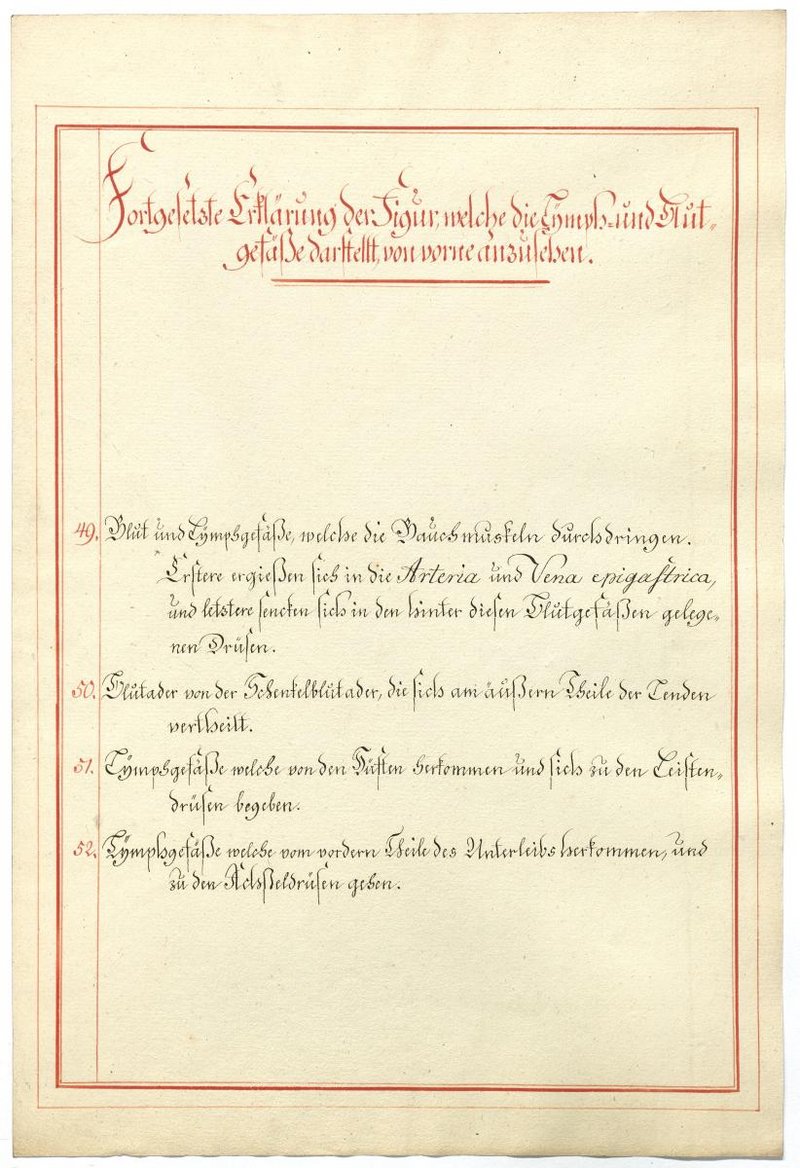 Fortgesetzte Erklärung der Figur, welche die Lymph- und Blut-
gefäße darstellt, von vorne anzusehen.
49. Blut und Lymphgefäße, welche die Bauchmuskeln durchdringen.
Erstere ergießen sich in die Arteria und Vena epigastrica,
und letztere sencken sich in den hinter diesen Blutgefäßen gelege-
nen Drüsen.
50. Blutader von der Schenkelblutader, die sich am äußern Theile der Lenden
vertheilt.
51. Lymphgefäße welche von den Hüften herkommen und sich zu den Leisten-
drüsen begeben.
52. Lymphgefäße welche vom vordern Theile des Unterleibs herkommen, und
zu den Achßeldrüsen gehen.